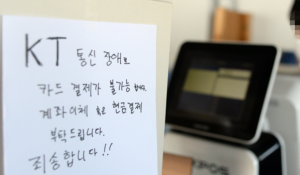 KT 통신 장애로
카드 결제가 불가능 합니다.
계좌이체 혹은 현금결제
부탁드립니다.
죄송합니다!!
POS